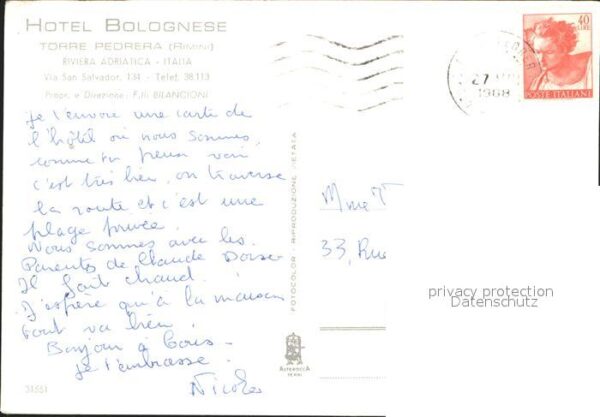 HOTEL BOLOGNESE
TORRE PEDRERA (RIMINI)
RIVIERA ADRIATICA - ITALIA
Via San Salvador, 134 - Telef. 38113
Propr. e Direzione: F.lli BILANCIONI
Je t'envoie une carte de
l'hôtel où nous sommes,
comme tu peux voir
c'est très bien, on traverse
la route et c'est une
plage privée.
Nous sommes avec les
Parents de Claude
Il fait chaud.
J'espère qu'à la maison
tout va bien.
Bonjour à tous.
je t'embrasse.
Nicole
31551
FOTOCOLOR - RIPRODUZIONE VIETATA
40
LIRE
POSTE ITALIANE
27
1968
Mme T
33, Rue
privacy protection
Datenschutz